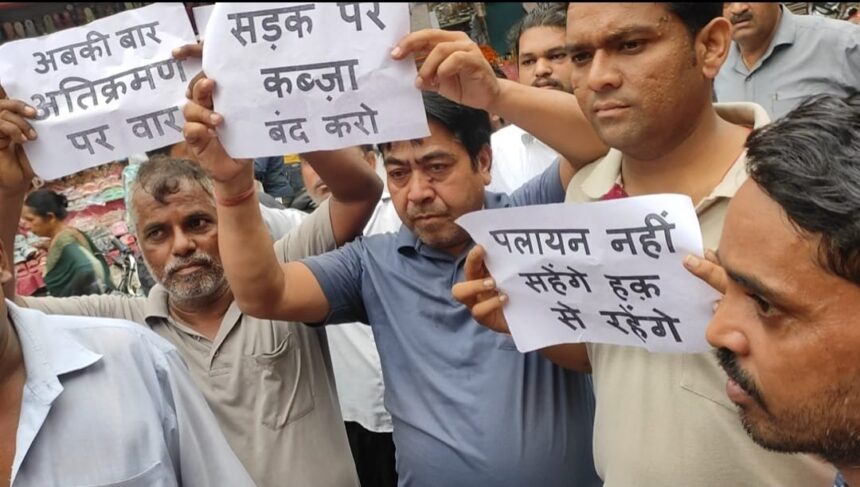 अबकी बार
अतिक्रमण
पर वार
सड़क पर
कब्ज़ा
बंद करो
पलायन नहीं
सहेंगे हक़
से रहेंगे